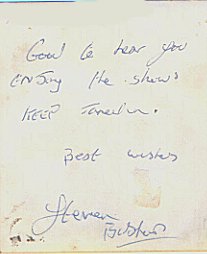 Good to hear you
ENJoy the shows
KEEP Tunedin.
Best wishes
Steven